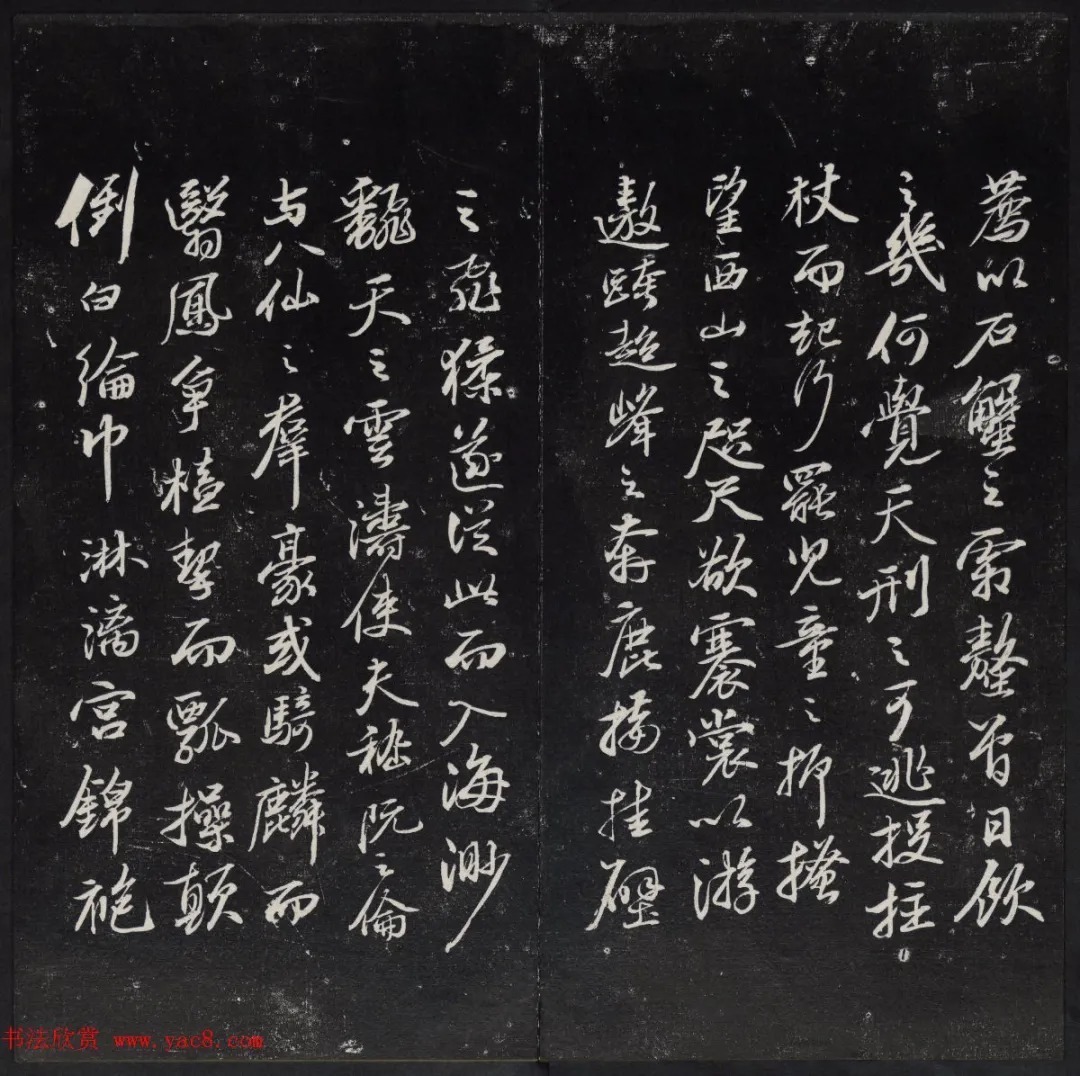 薦以石蟹之霜螯曾日飲
之幾何覺天刑之可逃投拄
杖而起行罷兒童之抑搔
望西山之咫尺欲褰裳以游
遨跨超峰之奔鹿接挂壁
之飛猱遂從此而入海渺
翻天之雲濤使夫嵇阮之倫
与八仙之羣豪或騎麟而
翳鳳爭榼挈而瓢操顛
倒白綸巾淋漓宮錦袍
书法欣赏 www.yac8.com